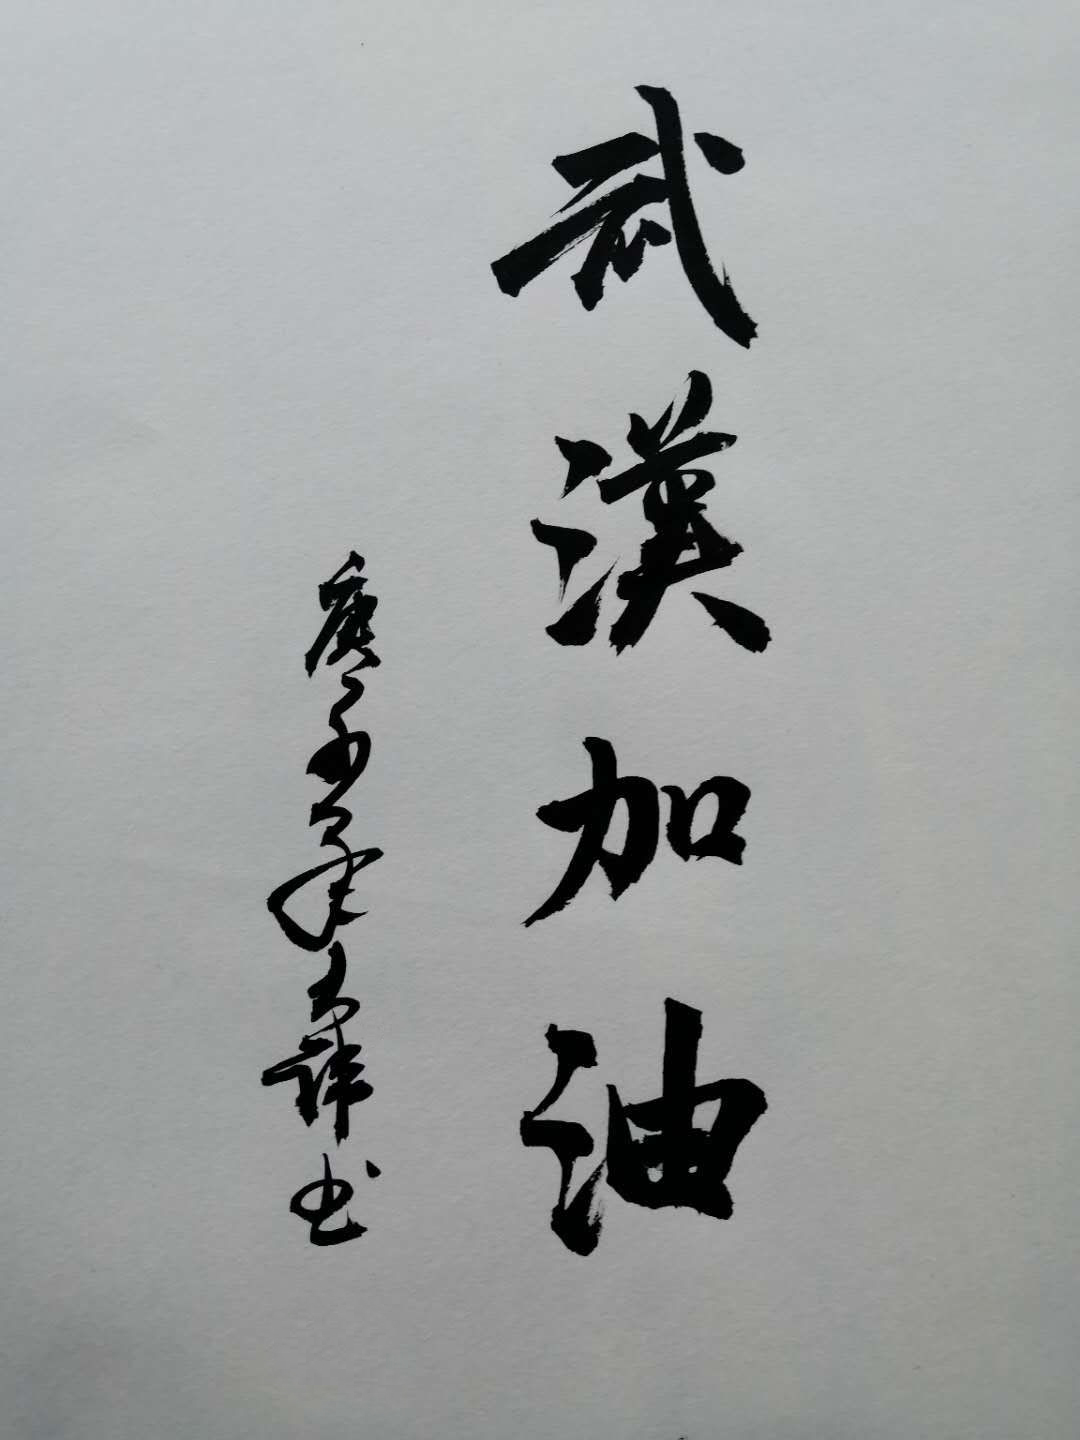 武漢加油
庚子年 書